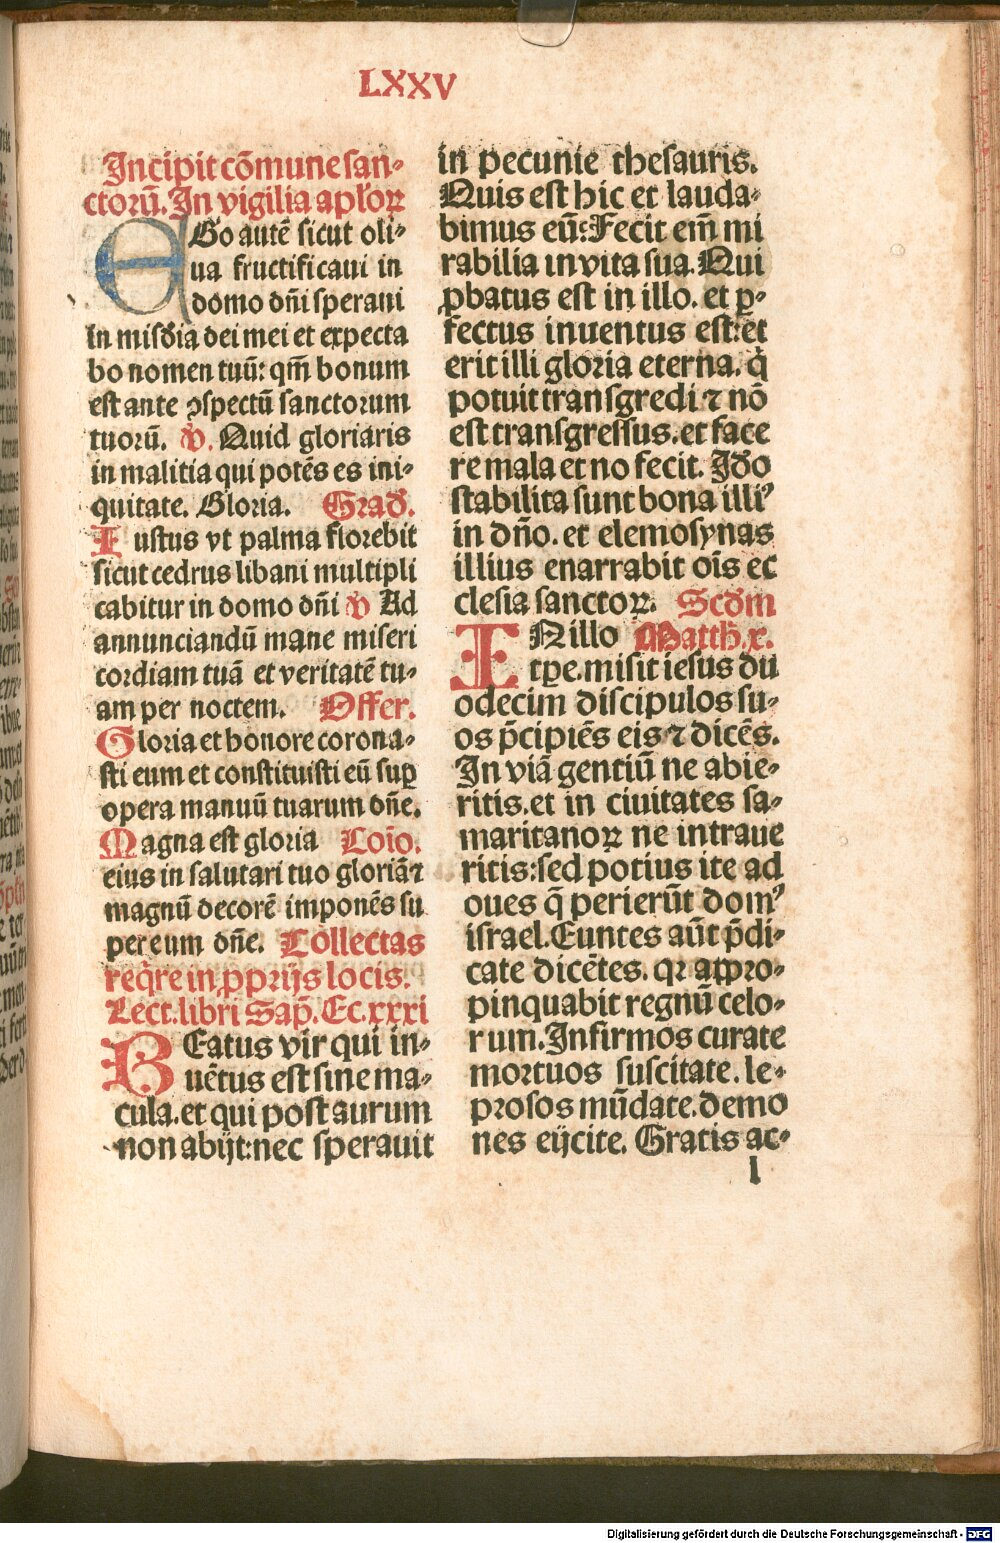 LXXV
Incipit cōmune san-
ctorū. In vigilia aplorꝝ
EGo autē sicut oli-
ua fructificaui in
domo dn̄i speraui
In misdia dei mei et expecta
bo nomen tuū: qm̄ bonum
est ante ꝯspectū sanctorum
tuorū. V. Quid gloriaris
in malitia qui potēs es ini-
quitate. Gloria. Grad.
Iustus vt palma florebit
sicut cedrus libani multipli
cabitur in domo dn̄i V Ad
annunciandū mane miseri
cordiam tuā et veritatē tu-
am per noctem. Offer.
Gloria et honore corona-
sti eum et constituisti eū suꝑ
opera manuū tuarum dn̄e.
Magna est gloria Coīo.
eius in salutari tuo gloriā ⁊
magnū decorē imponēs su
per eum dn̄e. Collectas
reqͥre in ꝓprijs locis.
Lect. libri Sap̄. Ec. xxxi
BEatus vir qui in-
uētus est sine ma-
cula. et qui post aurum
non abijt: nec sperauit
in pecunie thesauris.
Quis est hic et lauda-
bimus eū: Fecit em̄ mi
rabilia in vita sua. Qui
ꝓbatus est in illo. et ꝑ-
fectus inuentus est: et
erit illi gloria eterna. qͥ
potuit transgredi ⁊ nō
est transgressus. et face
re mala et no fecit. Ido
stabilita sunt bona illiꝰ
in dn̄o. et elemosynas
illius enarrabit oīs ec
clesia sanctoꝝ. Scdm
INillo Matth. x.
tꝑe. misit iesus du
odecim discipulos su-
os p̄cipiēs eis ⁊ dicēs.
In viā gentiū ne abie-
ritis. et in ciuitates sa-
maritanoꝝ ne intraue
ritis: sed potius ite ad
oues q̄ perierūt domꝰ
israel. Euntes aūt p̄di-
cate dicētes. qꝛ appro-
pinquabit regnū celo-
rum. Infirmos curate
mortuos suscitate. le-
prosos mūdate. demo
nes eijcite. Gratis ac-
l
Digitalisierung gefördert durch die Deutsche Forschungsgemeinschaft - DFG